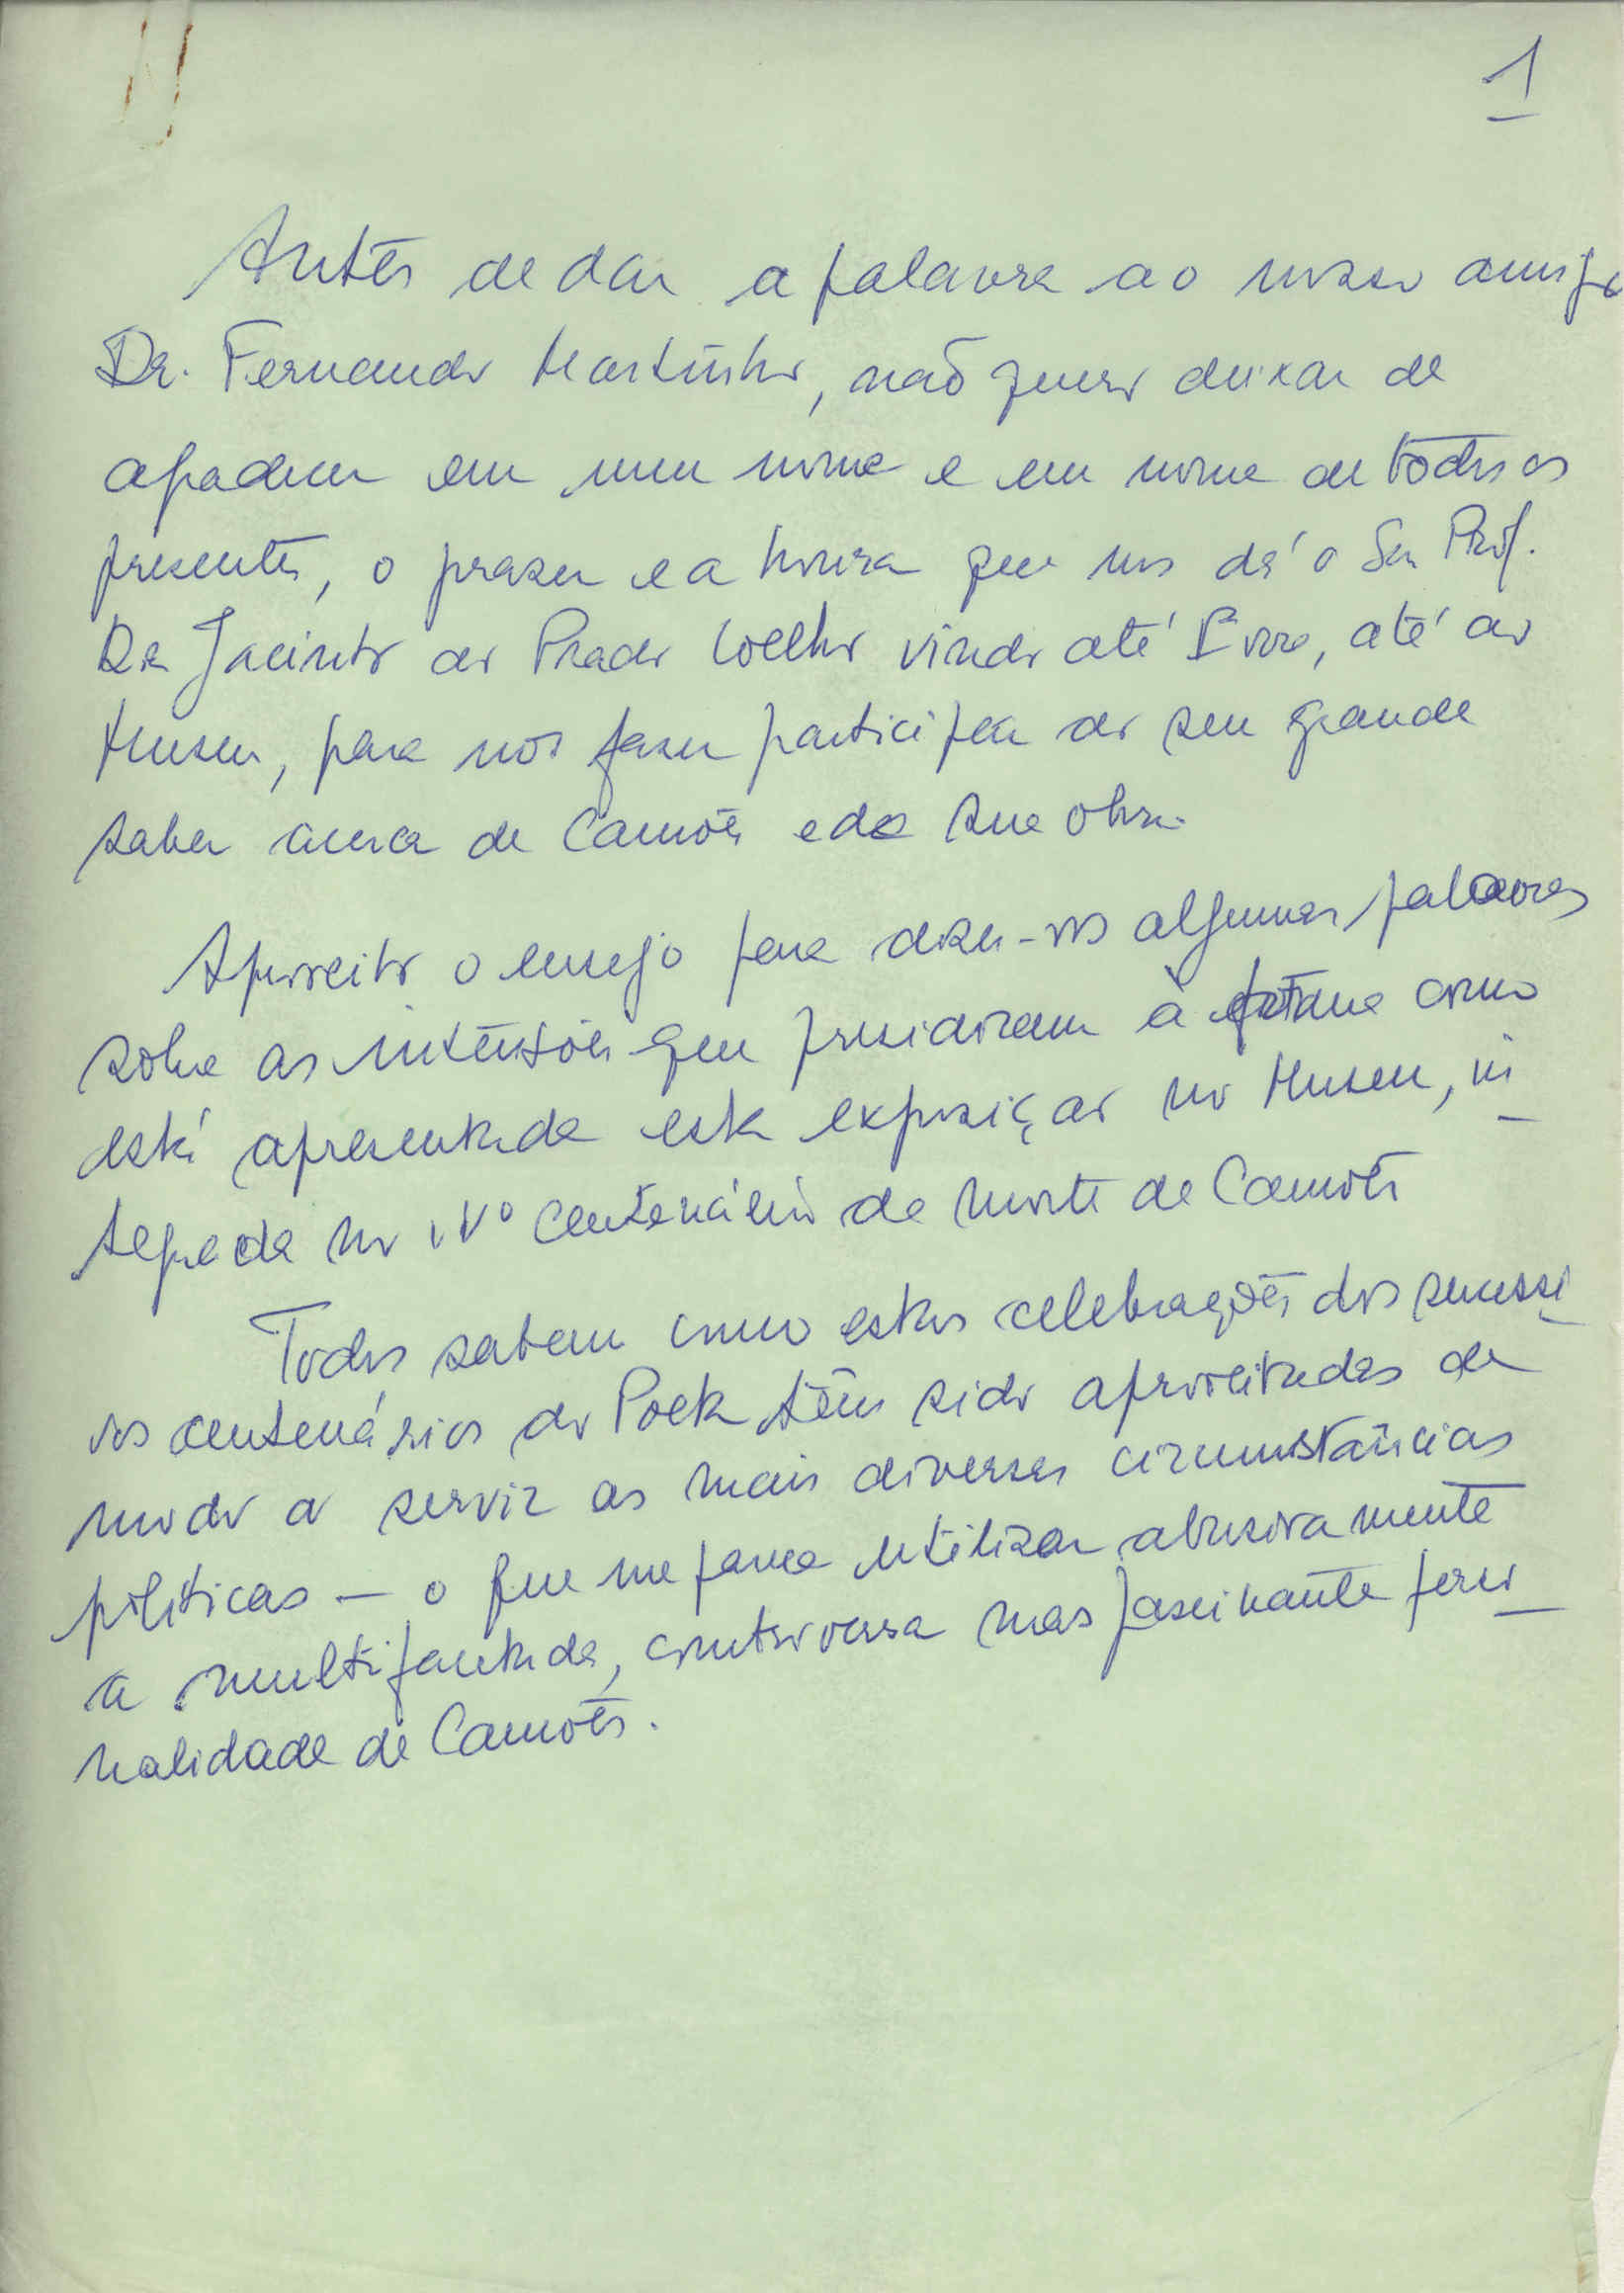 1
Antes de dar a palavra ao nosso amigo
Dr. Fernando Martinho, não quero deixar de
agradecer em meu nome e em nome de todos os
presentes, o prazer e a honra que nos dá o Sr. Prof.
Dr. Jacinto do Prado Coelho vindo até Évora, até ao
Museu, para nos fazer participar do seu grande
saber acerca de Camões e da sua obra.
Aproveito o ensejo para dizer-vos algumas palavras
sobre as intenções que presidiram à forma como
está apresentada esta exposição no Museu, in
tegrada no IVº Centenário da morte de Camões
Todos sabem como estas celebrações dos sucessi
vos centenários do Poeta têm sido aproveitadas de
modo a servir as mais diversas circunstâncias
políticas — o que me parece utilizar abusivamente
a multifacetada, controversa mas fascinante perso
nalidade de Camões.